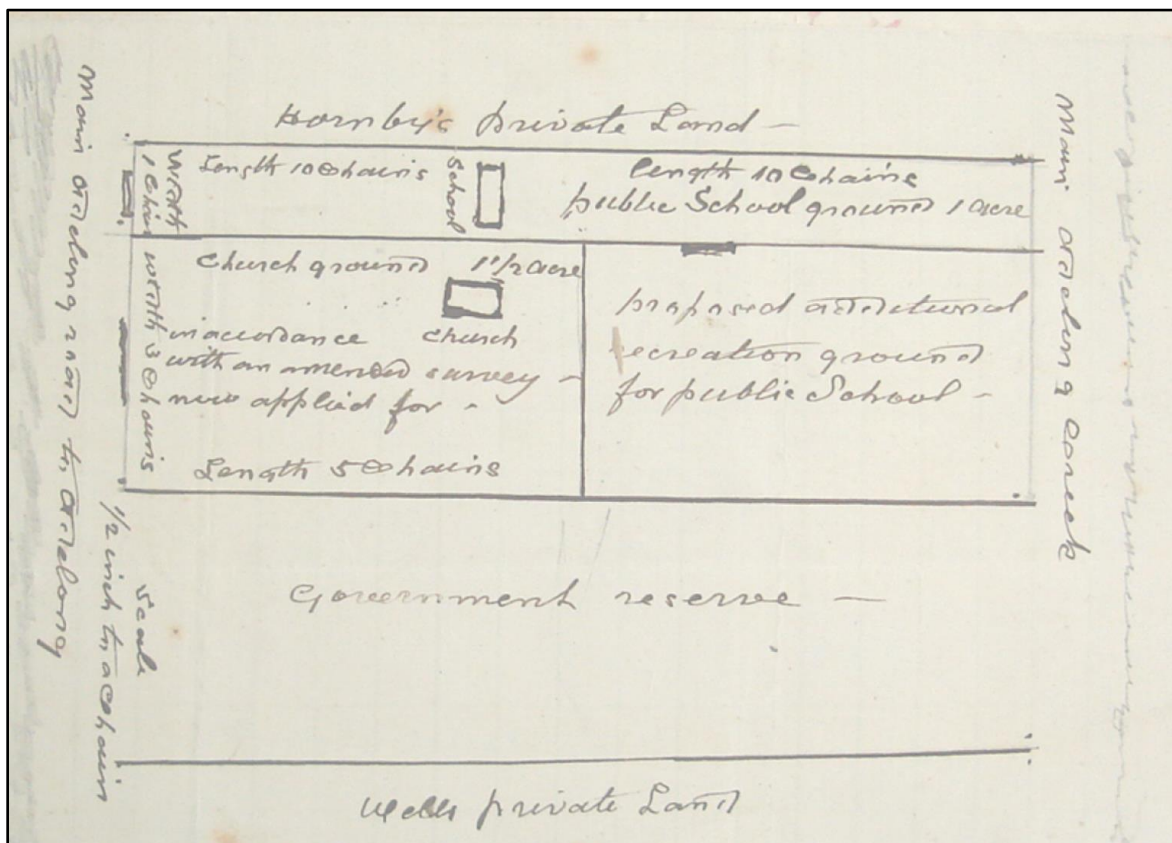 Hornby's private Land —
Length 10 Chains
School
length 10 Chains
public School ground 1 acre
Width
1 Chain
Church ground 1 1/2 acre
Church
in accordance
with an amended survey —
now applied for -
Length 5 Chains
width 3 Chains
proposed additional
recreation ground
for public School -
Government reserve —
private Land
Main Adelong road to Adelong
Scale
1/2 inch to a chain
Main Adelong Creek